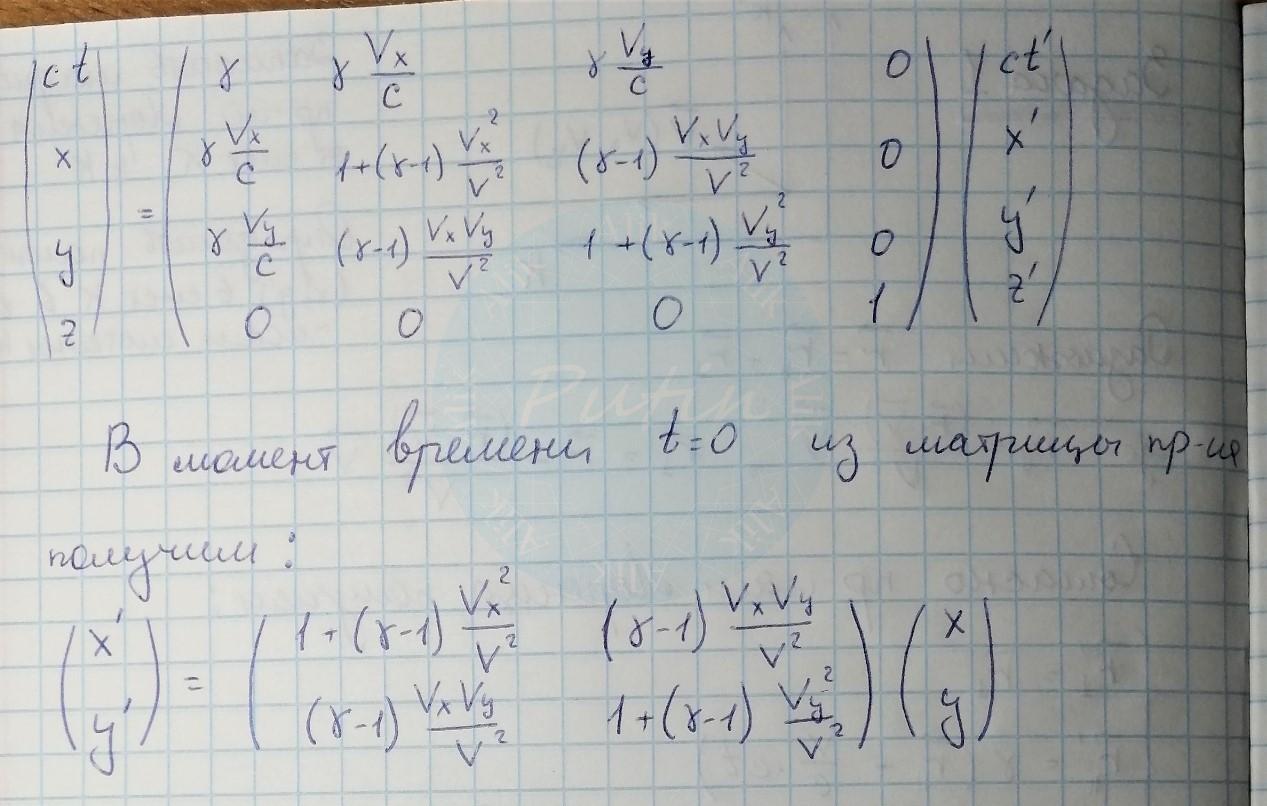 (ct x y z) = (γ γ Vx/c γ Vy/c 0) (ct' x' y' z')
γ Vx/c 1+(γ-1) Vx²/V² (γ-1) VxVy/V² 0
γ Vy/c (γ-1) VxVy/V² 1+(γ-1) Vy²/V² 0
0 0 0 1
Putin
В момент времени t=0 из матрицы пр-ия
получим:
(x' y') = (1+(γ-1) Vx²/V² (γ-1) VxVy/V²) (x y)
(γ-1) VxVy/V² 1+(γ-1) Vy²/V²